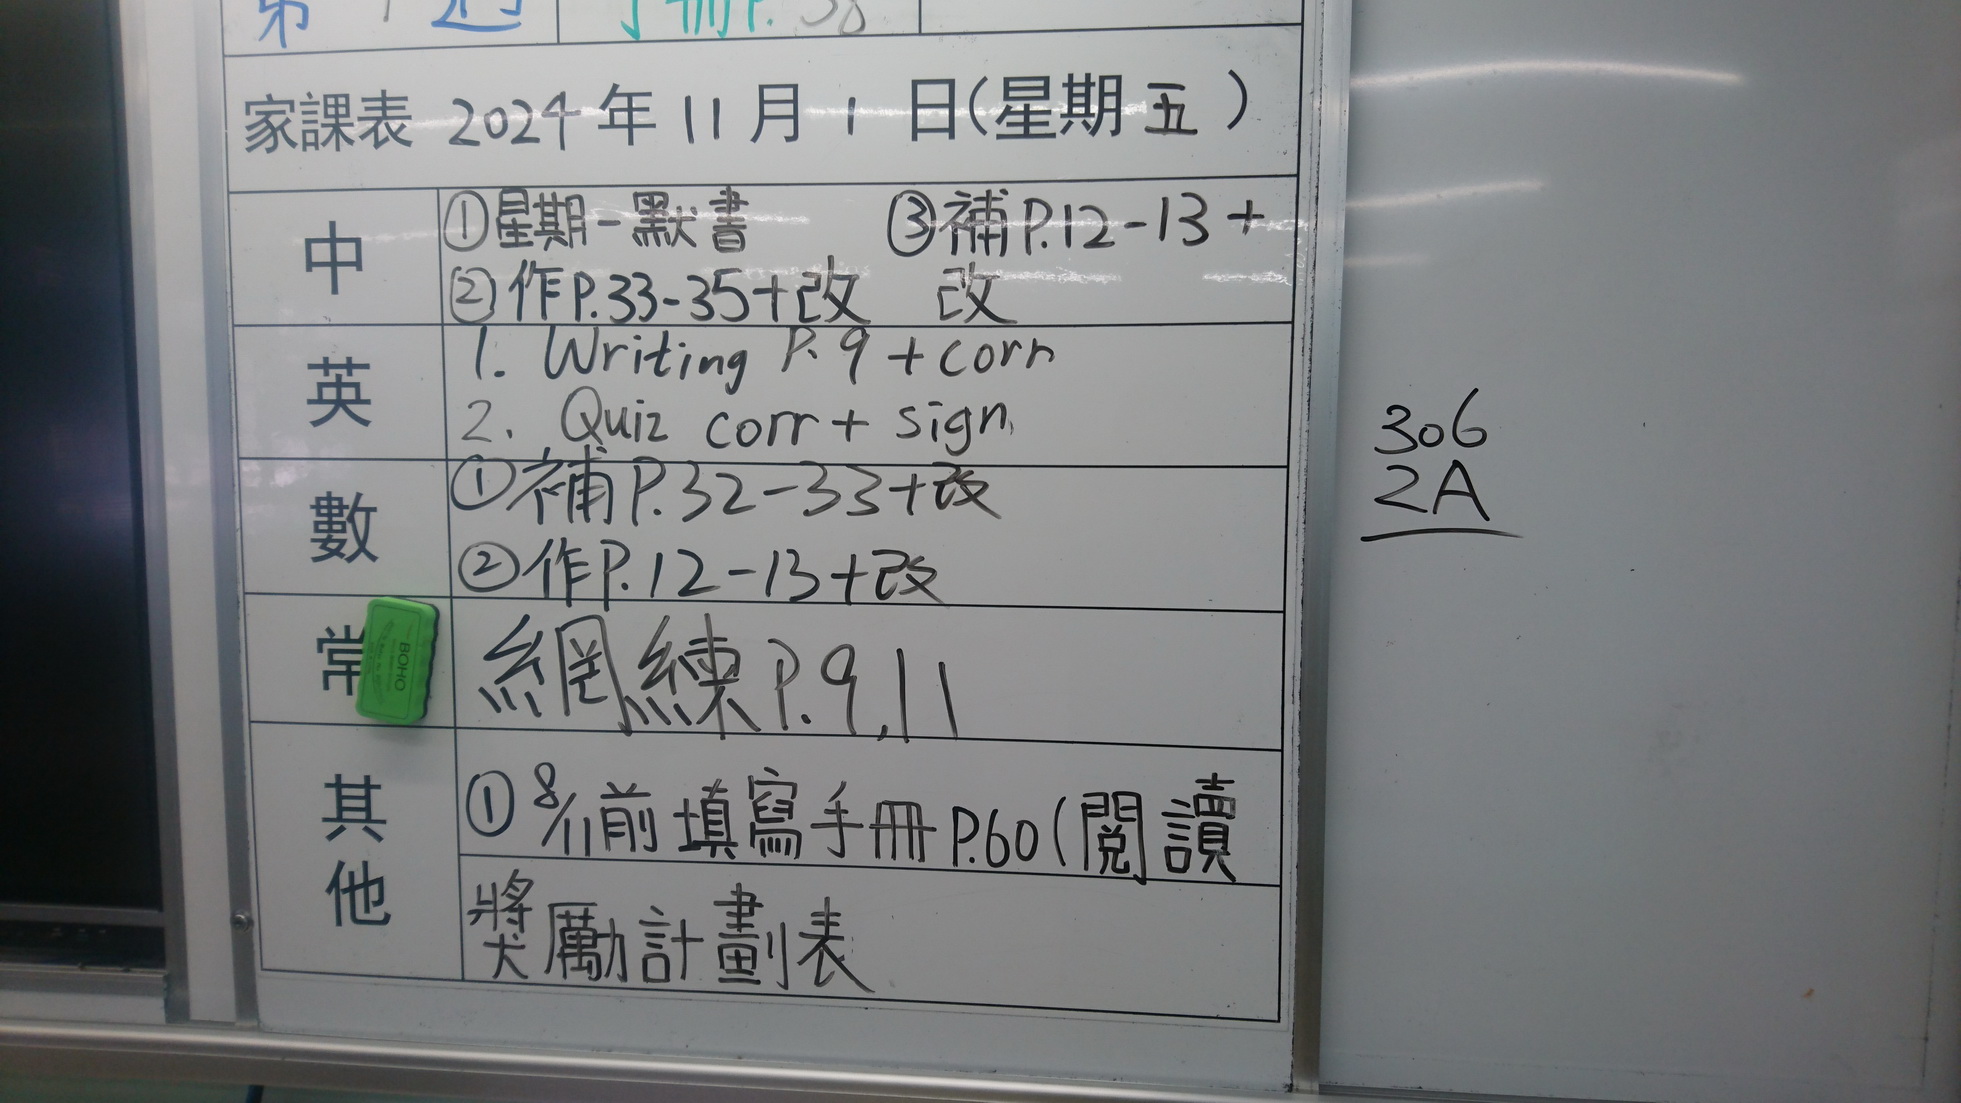 第 1 週
手冊P. 38
家課表 2024年11月1日(星期五)
中
①星期一默書 ③補P.12-13+
②作P.33-35+改 改
英
1. Writing P.9 + corr
2. Quiz corr + sign
數
①補P.32-33+改
②作P.12-13+改
常
BOHO
網練P.9,11
其他
①8/11前填寫手冊P.60(閱讀
獎勵計劃表
306
2A